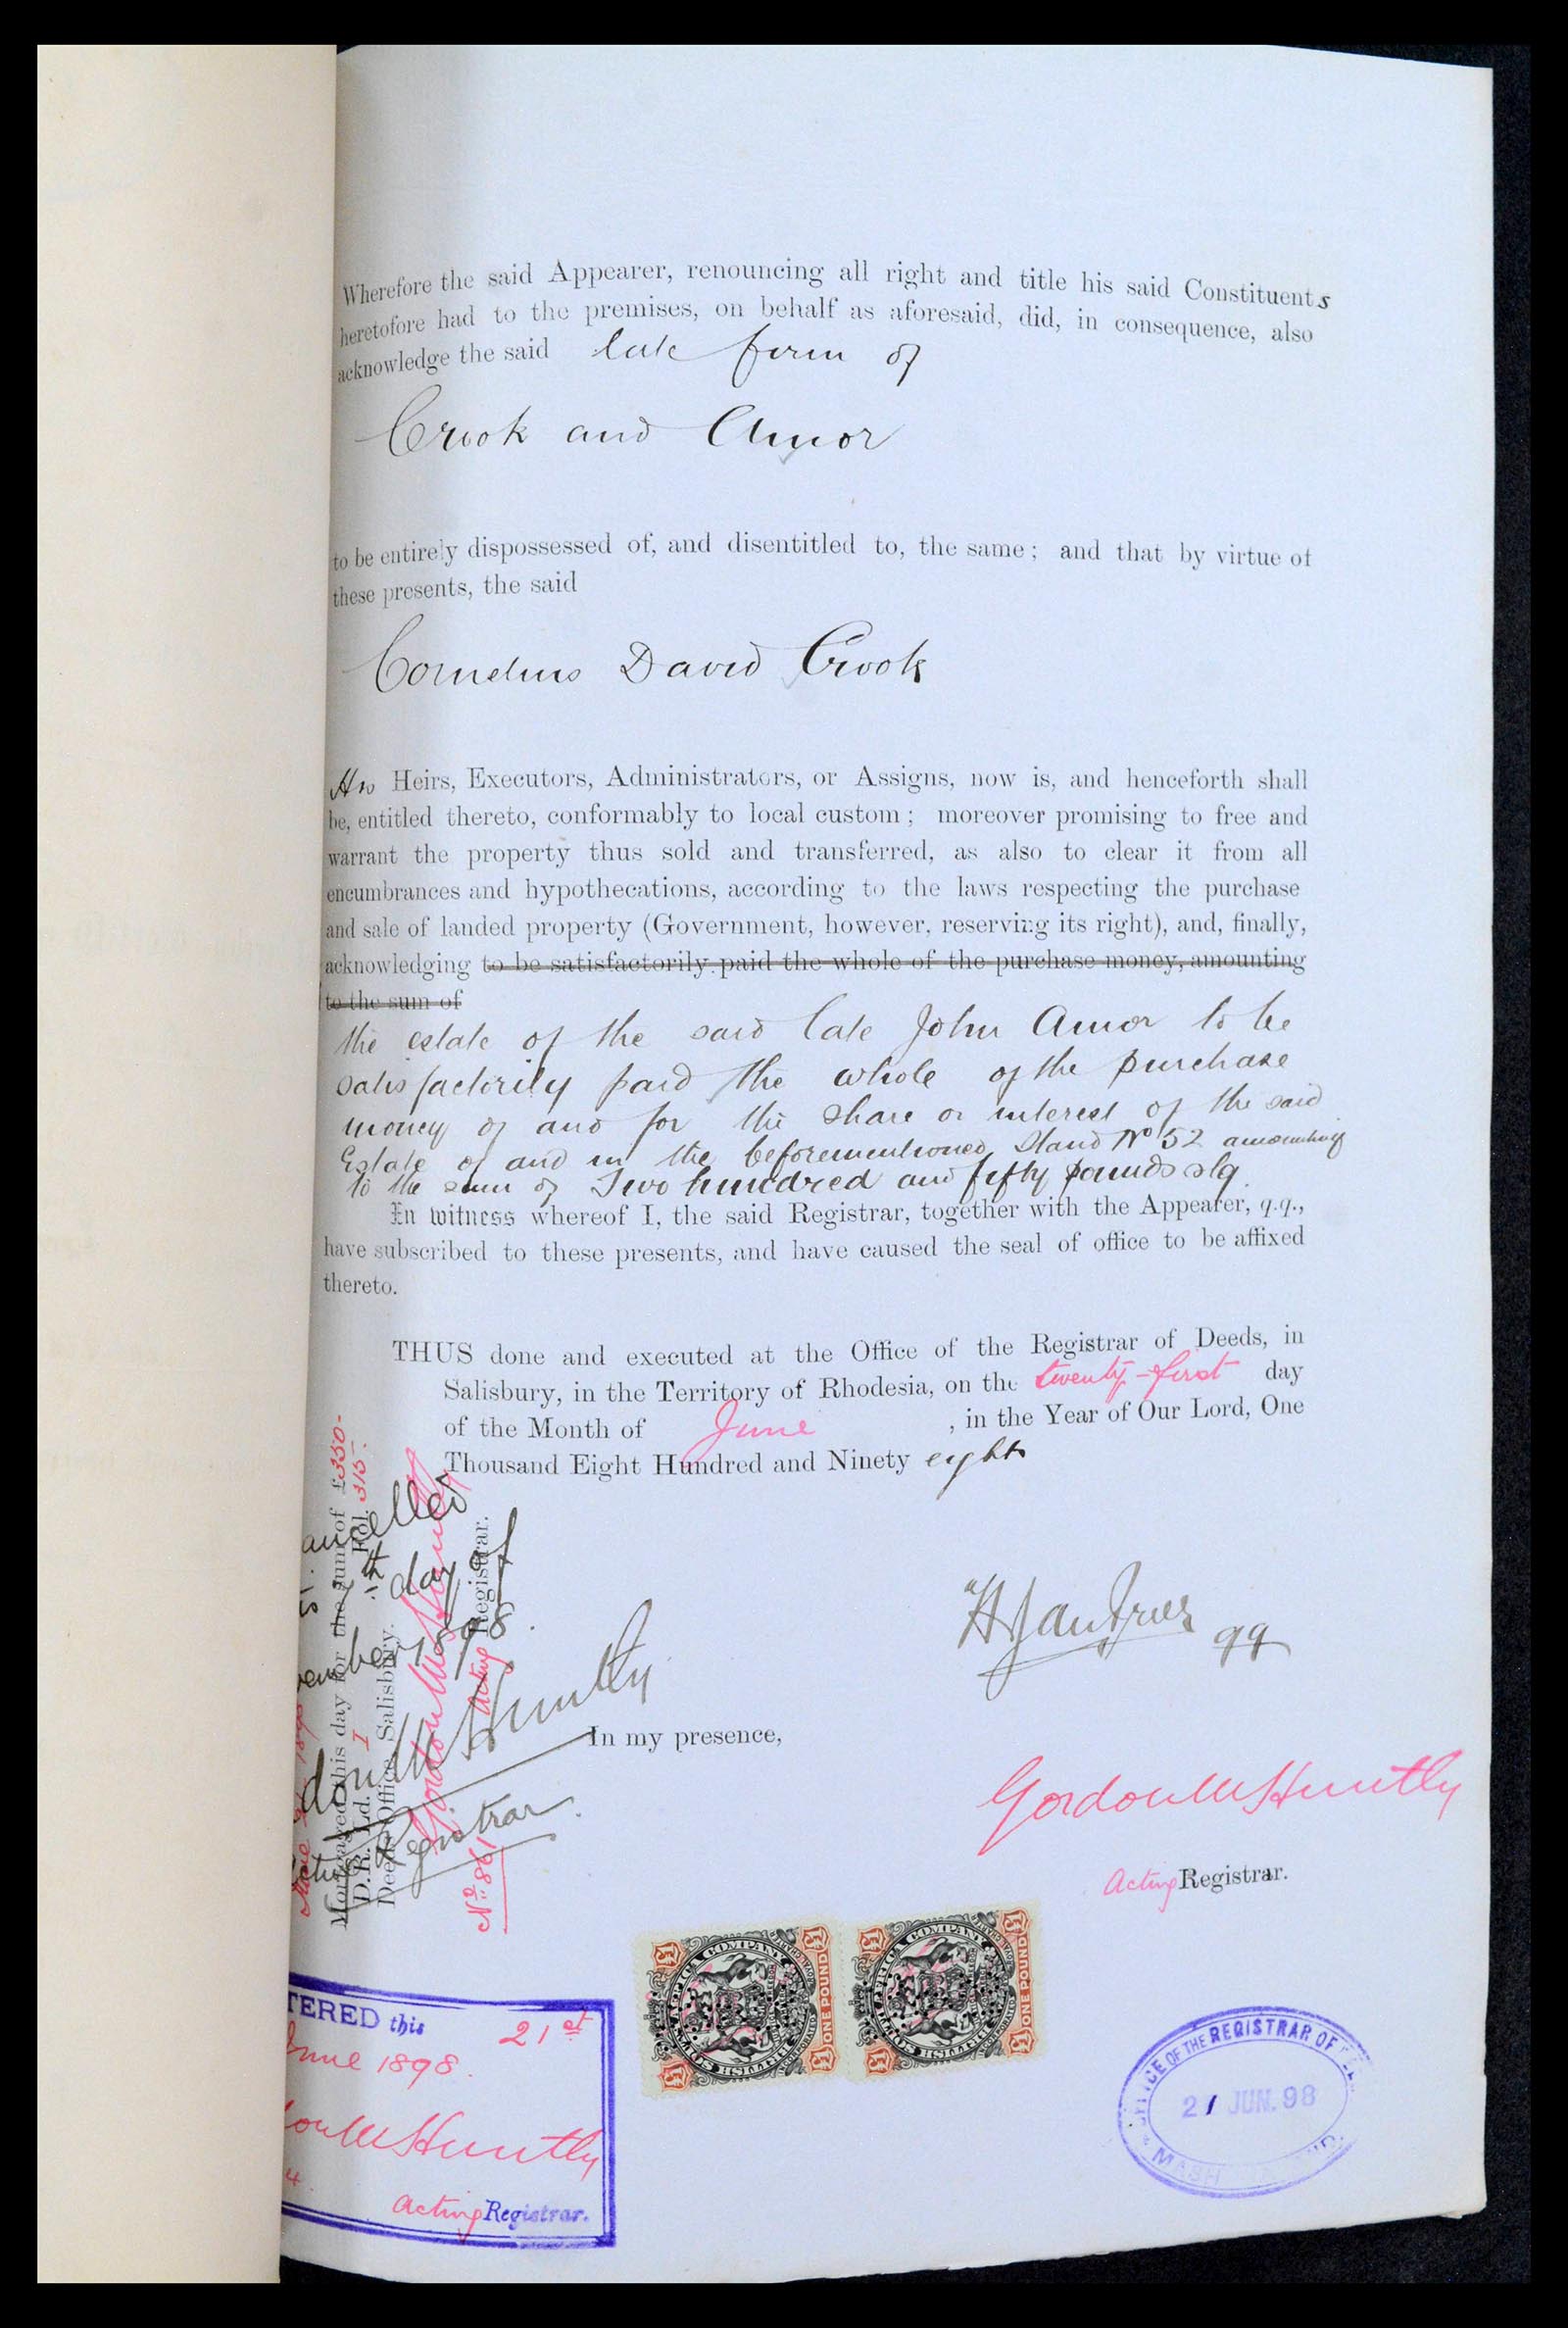 Wherefore the said Appearer, renouncing all right and title his said Constituents
heretofore had to the premises, on behalf as aforesaid, did, in consequence, also
acknowledge the said late firm of
Crook and Amor
to be entirely dispossessed of, and disentitled to, the same; and that by virtue of
these presents, the said
Cornelius David Crook
His Heirs, Executors, Administrators, or Assigns, now is, and henceforth shall
be, entitled thereto, conformably to local custom; moreover promising to free and
warrant the property thus sold and transferred, as also to clear it from all
encumbrances and hypothecations, according to the laws respecting the purchase
and sale of landed property (Government, however, reserving its right), and, finally,
acknowledging to be satisfactorily paid the whole of the purchase money, amounting
to the sum of
the estate of the said late John Amor to be
satisfactorily paid the whole of the purchase
money of and for the share or interest of the said
Estate of and in the beforementioned Stand No 52 amounting
to the sum of Two hundred and fifty pounds stg.
In witness whereof I, the said Registrar, together with the Appearer, q.q.,
have subscribed to these presents, and have caused the seal of office to be affixed
thereto.
THUS done and executed at the Office of the Registrar of Deeds, in
Salisbury, in the Territory of Rhodesia, on the twenty-first day
of the Month of June, in the Year of Our Lord, One
Thousand Eight Hundred and Ninety eight
qq
In my presence,
Gordon M Huntly
Acting Registrar.
Mortgaged this day for the sum of £350-
D.R. Ld. I Fol. 315.
Deeds Office, Salisbury.
Gordon M Huntly
Acting Registrar.
No. 861
ancelled
day of
ember 1898.
don M Huntly
Registrar.
TERED this 21st
June 1898.
don M Huntly
Acting Registrar.
BRITISH SOUTH AFRICA COMPANY
£1
ONE POUND
BRITISH SOUTH AFRICA COMPANY
£1
ONE POUND
OFFICE OF THE REGISTRAR OF
21 JUN. 98
MASH